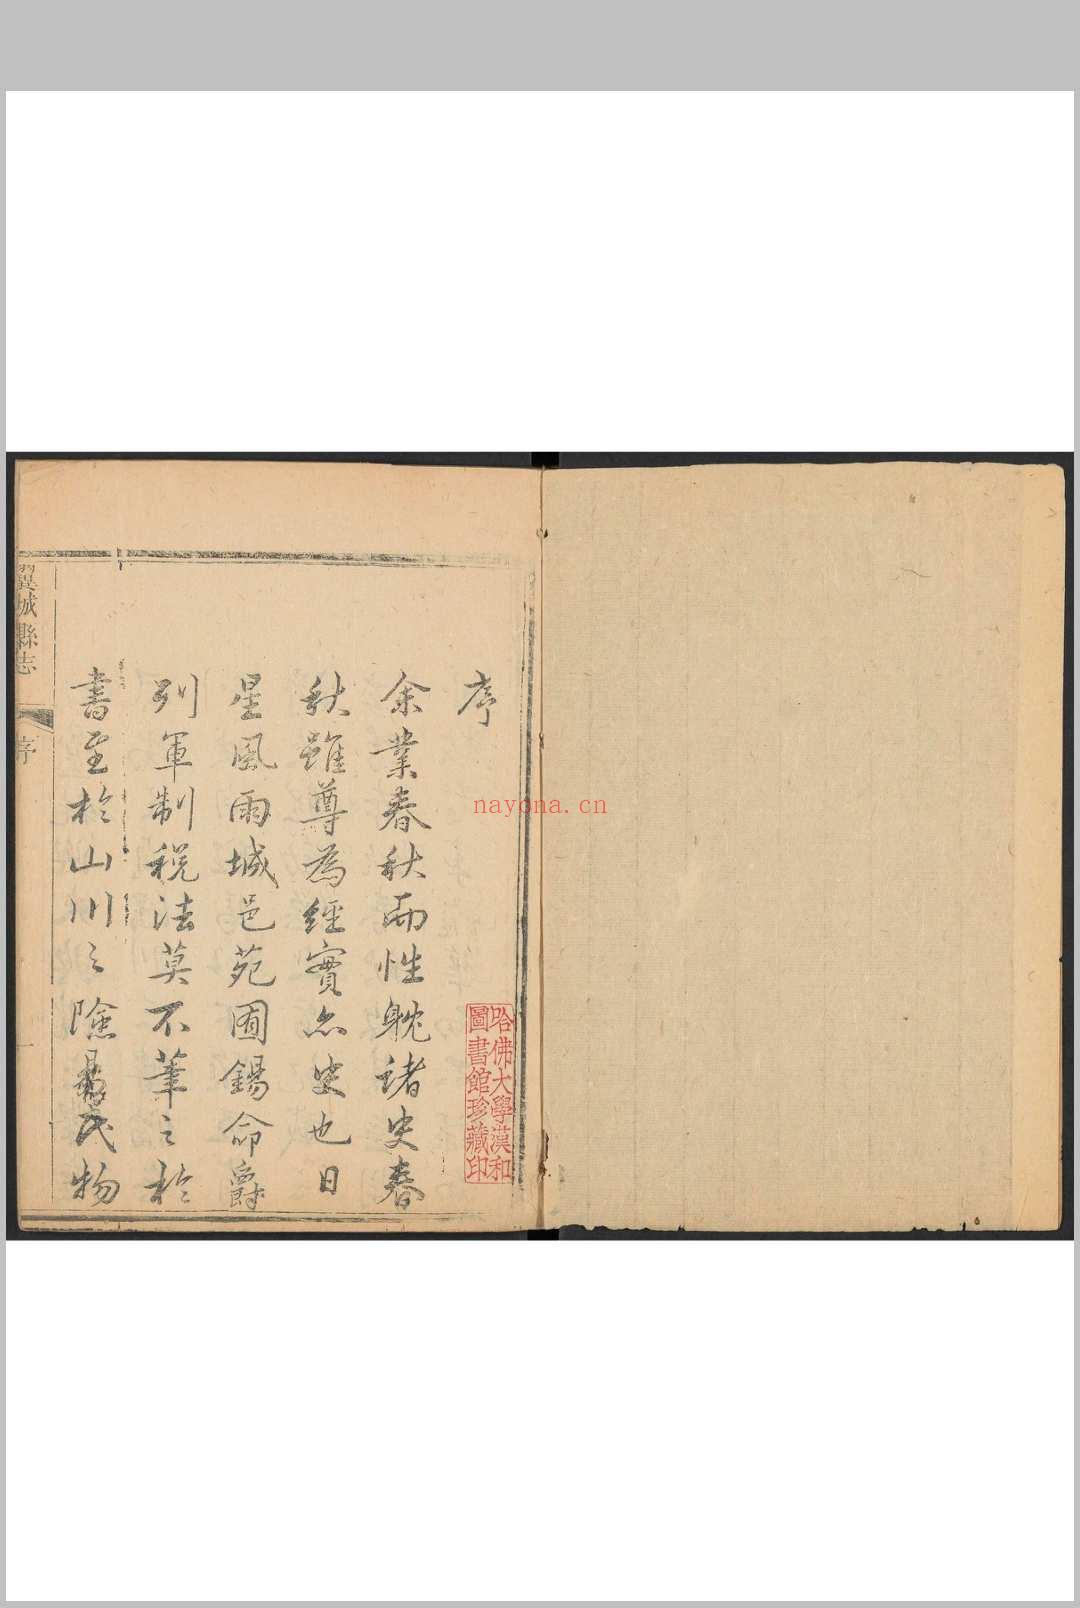 序
余業春秋而性耽諸史春
秋雖尊為經實亦史也日
星風雨城邑苑囿錫命爵
列軍制稅法莫不筆之於
書至於山川之險易民物
翼城縣志
序
哈佛大學漢和
圖書館珍藏印
nayona.cn